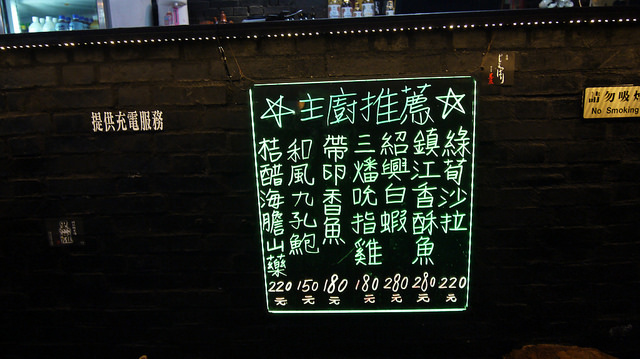 提供充電服務
☆主廚推薦☆
綠荀沙拉
220元
鎮江香酥魚
280元
紹興白蝦
280元
三燔吮指雞
180元
帶卵香魚
180元
和風九孔鮑
150元
桔醋海膽山藥
220元
請勿吸煙
No Smoking